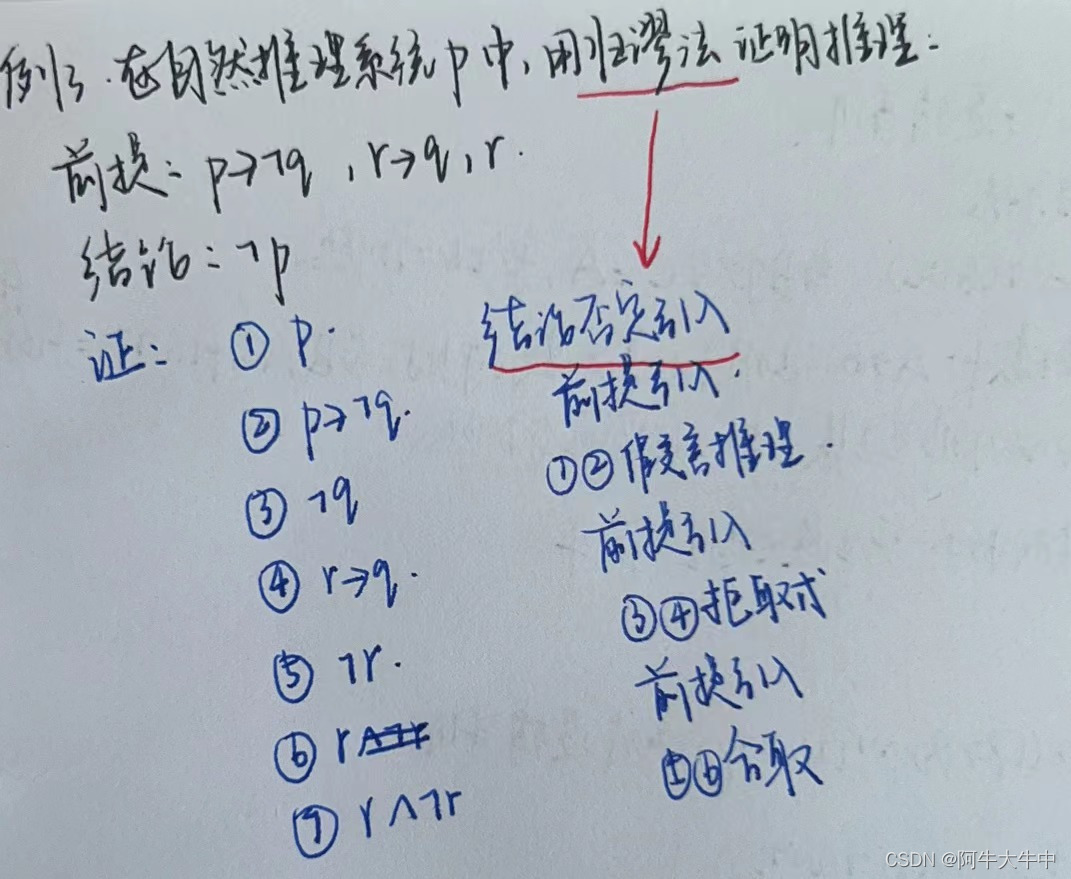 例3.在自然推理系统p中,用归谬法证明推理:
前提: p→¬q , r→q , r.
结论: ¬p
证: ① p. 结论否定引入
② p→¬q. 前提引入.
③ ¬q ①②假言推理.
④ r→q. 前提引入
⑤ ¬r. ③④拒取式
⑥ r 前提引入
⑦ r∧¬r ⑤⑥合取
CSDN @阿牛大牛中